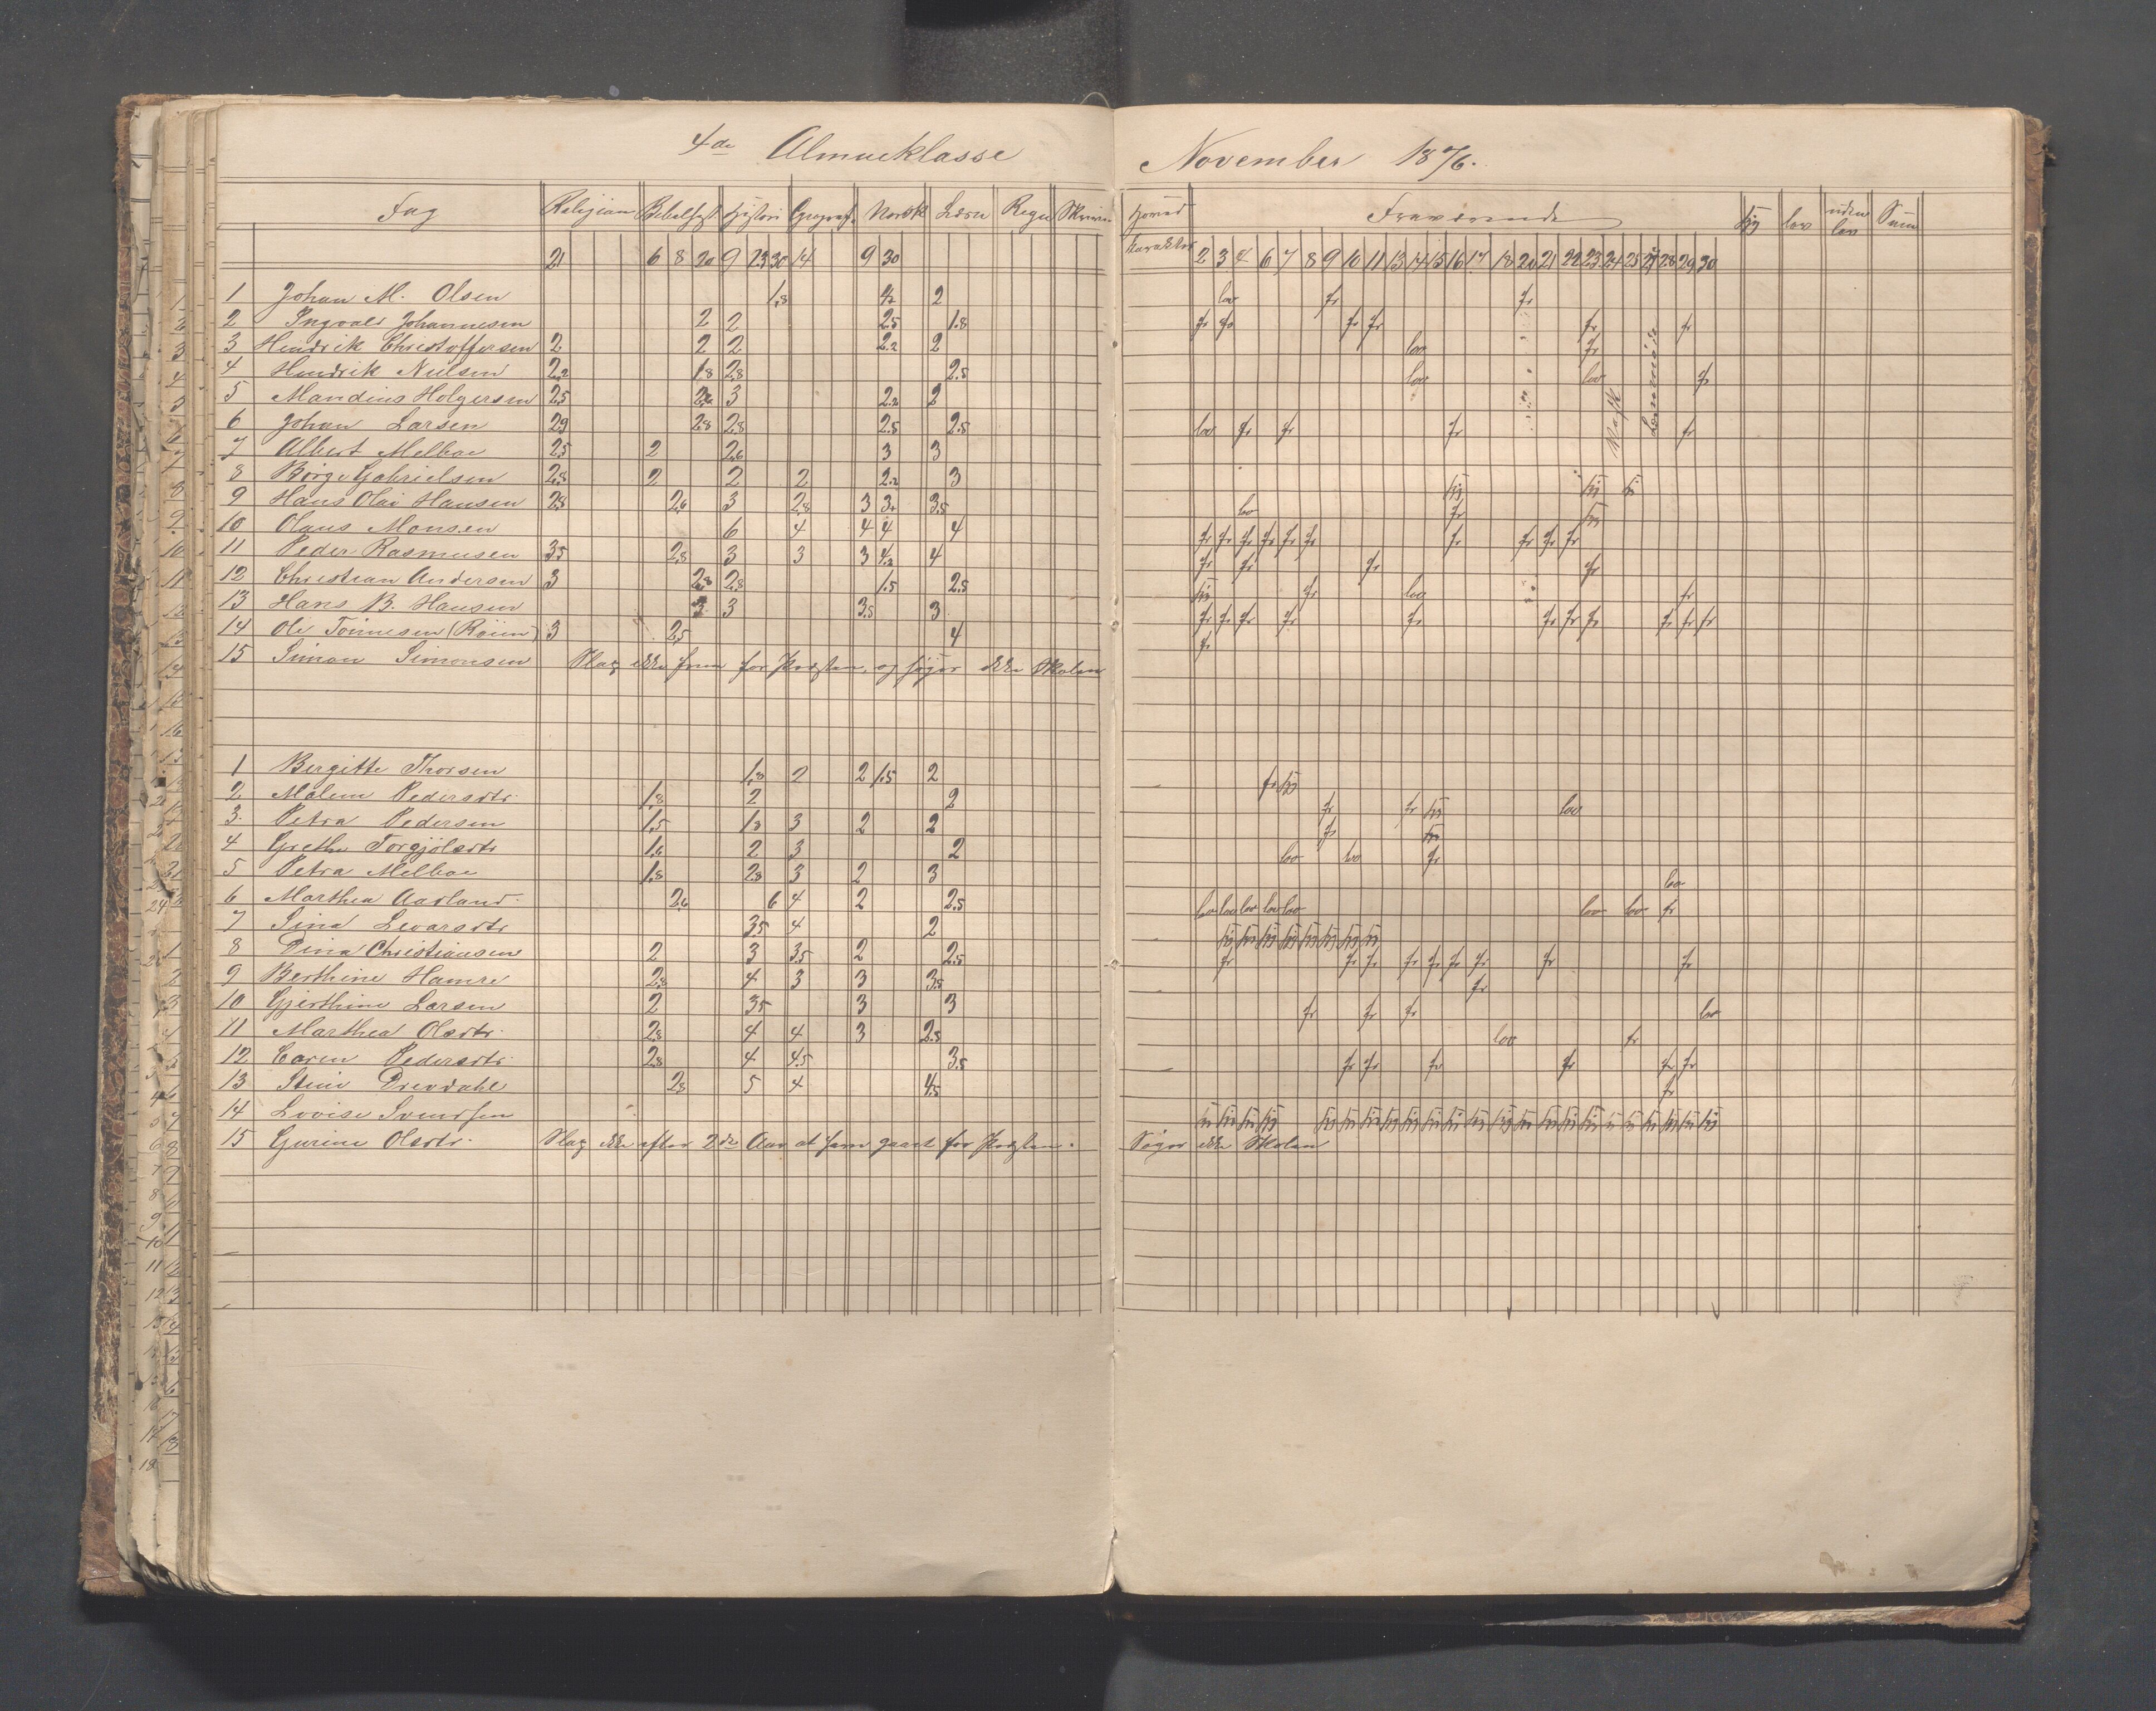 4de Almueklasse November 1876.
Fag Religion Bibelhist Histori Geograf. Norsk Læsn Regn Skrivn Hoved Fraværende syg lov uden lov Sum
21 6 8 20 9 23 30 14 9 30 karakter 2 3 4 6 7 8 9 10 11 13 14 15 16 17 18 20 21 22 23 24 25 27 28 29 30
1 Johan M. Olsen 1,8 2 lov fr fr
2 Ingvald Johannesen 2 2 2.5 1.8 fr fr fr fr fr fr
3 Hendrik Christoffersen 2 2 2 2.2 2 lov fr
4 Hendrik Nielsen 2,2 1.8 2,8 2.5 lov lov fr
5 Mandius Holgersen 2,5 2,6 3 2.2 2
6 Johan Larsen 2,9 2,8 2,8 2.5 2.5 lov fr fr fr fr
7 Albert Melboe 2,5 2 2,6 3 3
8 Börge Gabrielsen 2,8 2 2 2 2.2 3 syg syg syg
9 Hans Olai Hansen 2,8 2,6 3 2,8 3 3. 3.5 lov fr syg
10 Olaus Monsen 6 4 4 4 4 fr fr fr fr fr fr fr fr fr fr
11 Peder Rasmusen 3,5 2,8 3 3 3 4.2 4 fr fr fr fr
12 Christian Andersen 3 2,8 2,8 1.5 2.5 syg fr lov fr
13 Hans B. Hansen 3 3 3.5 3 fr fr fr fr fr fr fr fr fr fr fr
14 Ole Tönnesen (Röim) 3 2,5 4 fr
15 Simon Simonsen Slap ikke frem for Præsten, og söger ikke Skolen
1 Bergitte Thorsen 1,8 2 2 1.5 2 fr syg
2 Malene Pedersdtr. 1,8 2 2 fr fr syg lov
3. Petra Pedersen 1,5 1,8 3 2 2 fr syg
4 Grethe Torgjölsdtr 1,6 2 3 2 lov lov fr
5 Petra Melboe 1,8 2,8 3 2 3 lov
6 Marthea Aarland. 2,6 6 4 2 2.5 lov lov lov lov lov lov lov fr
7 Sina Levarsdtr 3,5 4 2 syg syg syg syg syg syg syg syg
8 Dina Christiansen 2 3 3.5 2 2.5 fr fr fr fr fr fr fr fr fr
9 Berthine Hamre 2,8 4 3 3 3.5 fr
10 Gjerthine Larsen 2 3,5 3 3 fr fr fr lov
11 Marthea Olsdtr. 2,8 4 4 3 2.8 lov fr
12 Caren Pedersdtr. 2,8 4 4.5 3.5 fr fr fr fr fr fr
13 Stine Drevdahl 2,8 5 4 4.5 fr
14 Lovise Svendsen syg syg syg syg syg syg syg syg syg syg syg syg syg syg syg syg syg syg syg syg syg syg syg
15 Gurine Olsdtr. Slap ikke efter 2de Aar at fem gaaet for Præsten. Söger ikke Skolen